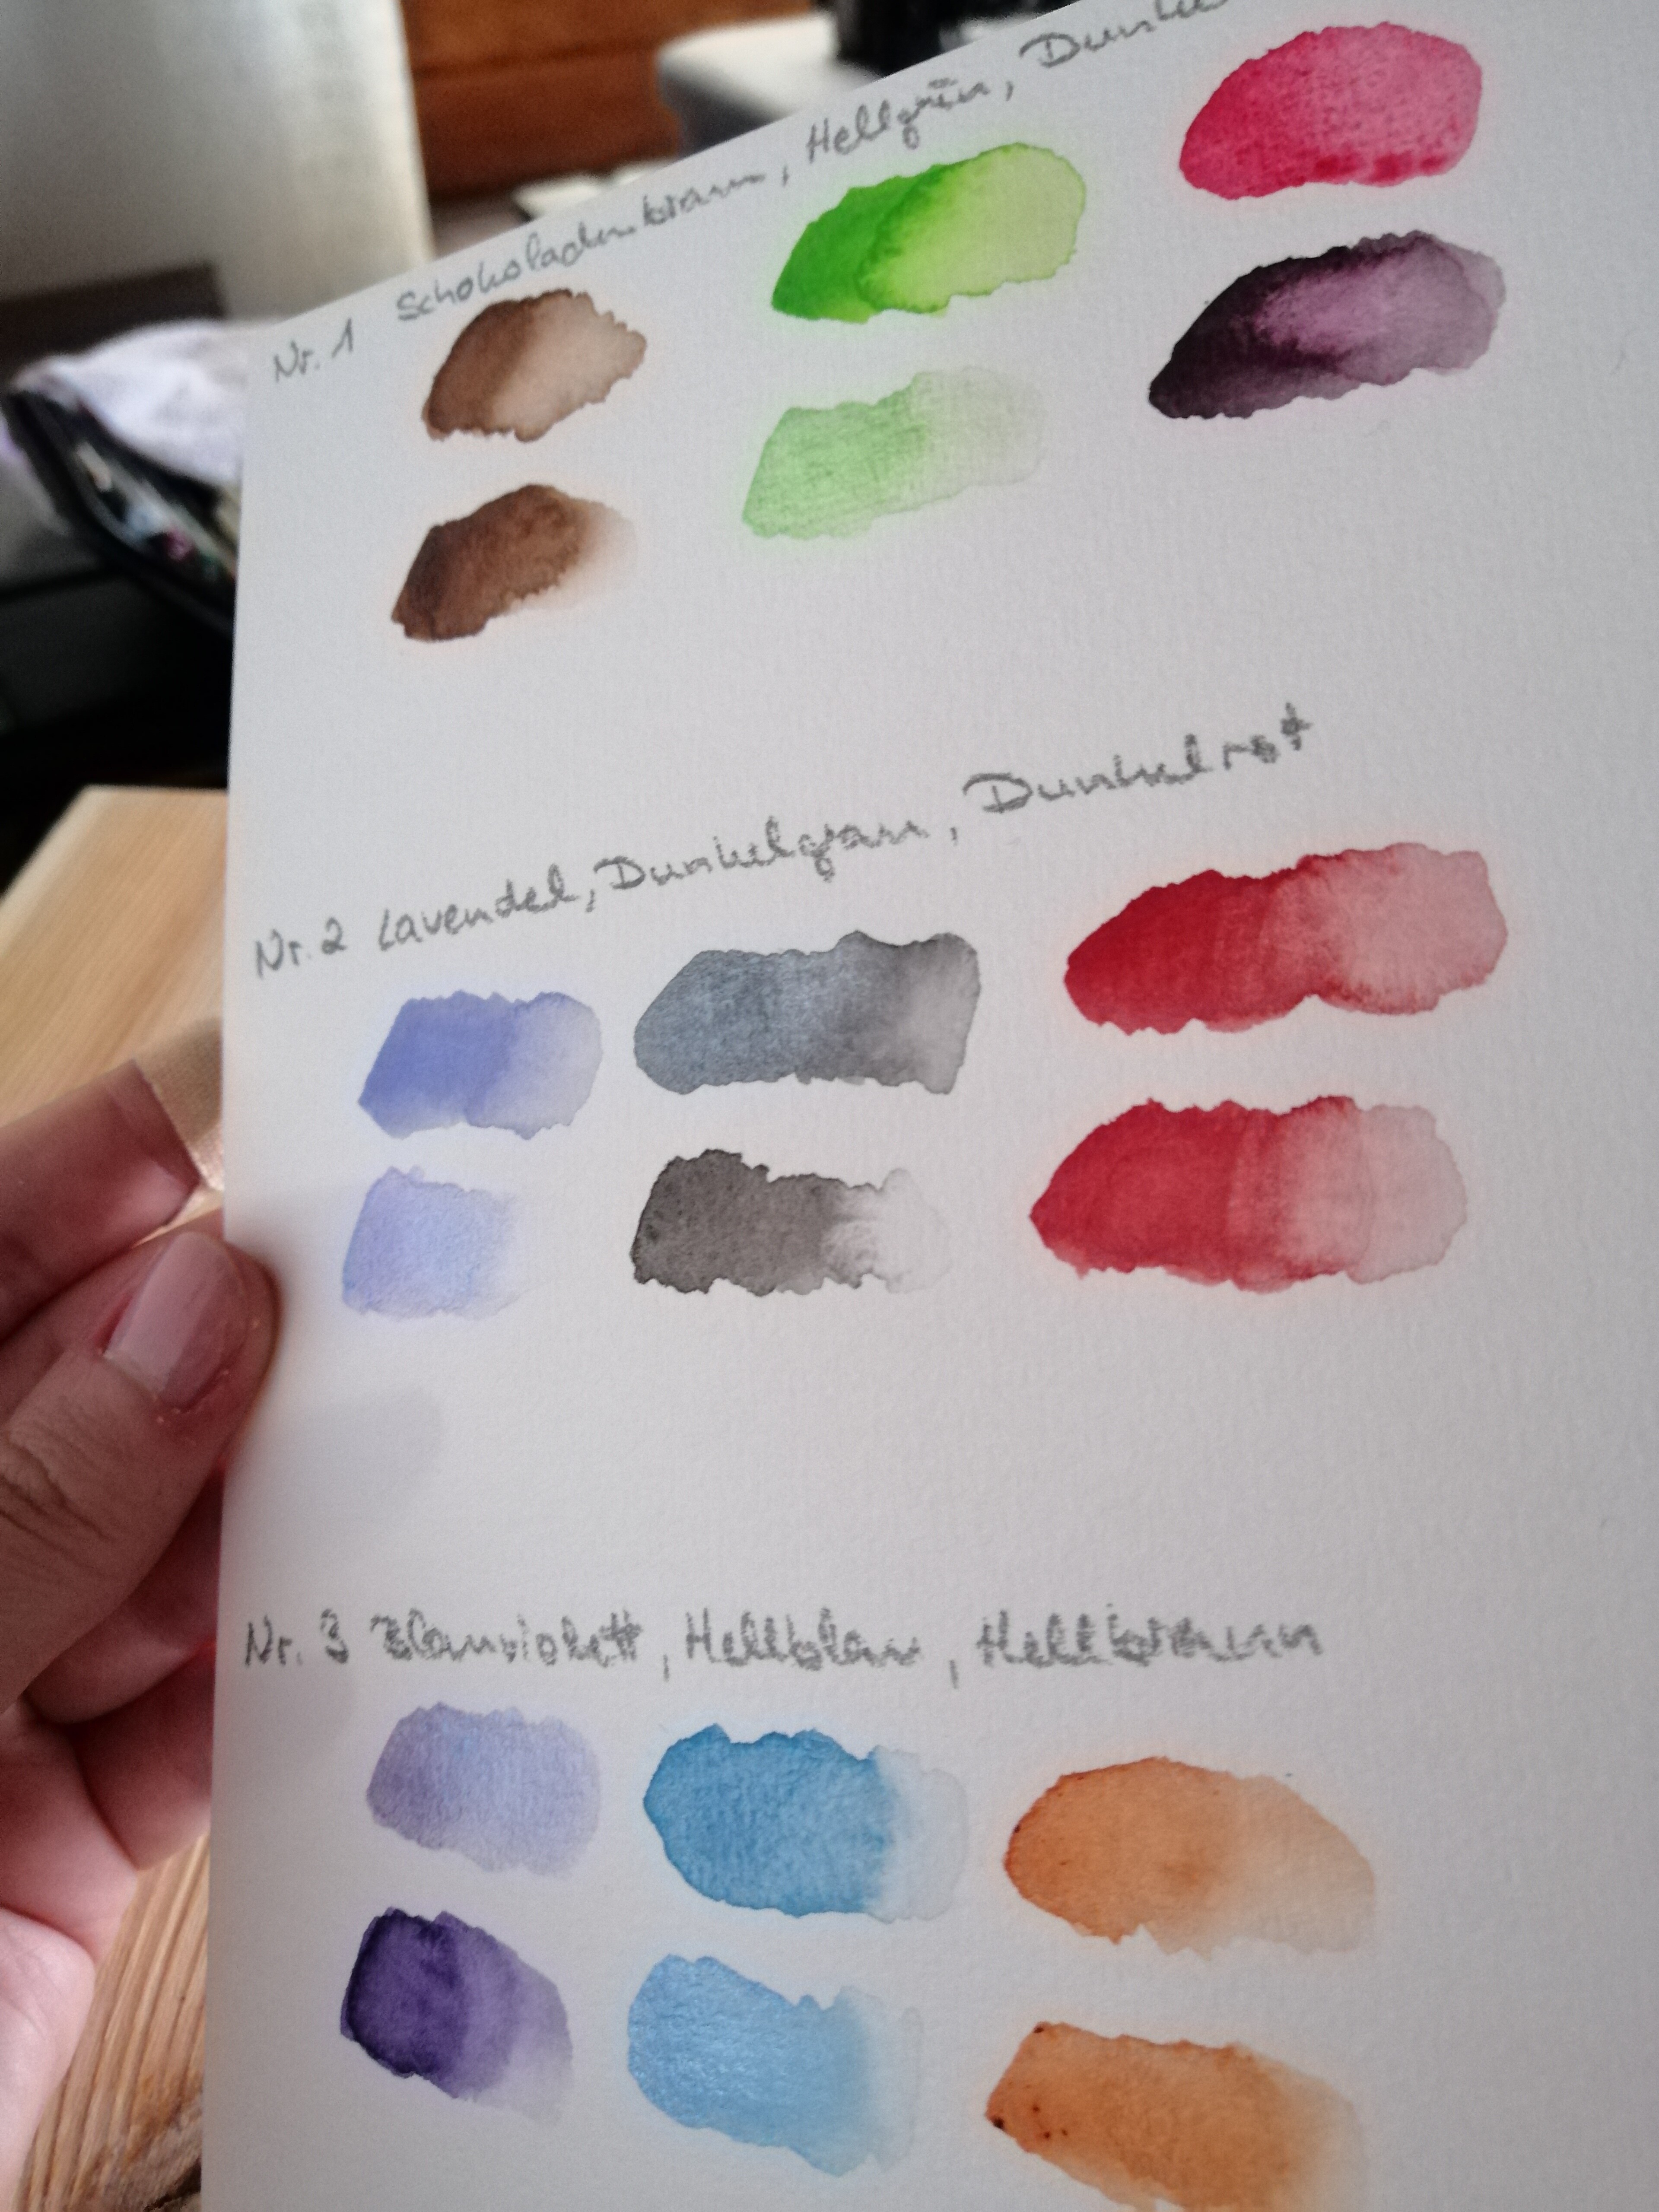 Nr. 1 Schokoladenbraun, Hellgrün,
Nr. 2 Lavendel, Dunkelgrau, Dunkelrot
Nr. 3 Blauviolett, Hellblau, Hellbraun